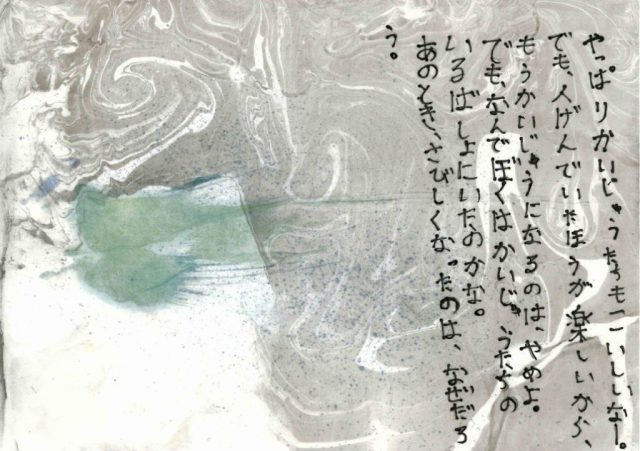 やっぱりかいじゅうたちもこいしいなー。
でも、人げんでいたほうが楽しいから、
もうかいじゅうになるのは、やめよ。
でも、なんでぼくはかいじゅうたちの
いるばしょにいたのかな。
あのとき、さびしくなったのは、なぜだろ
う。